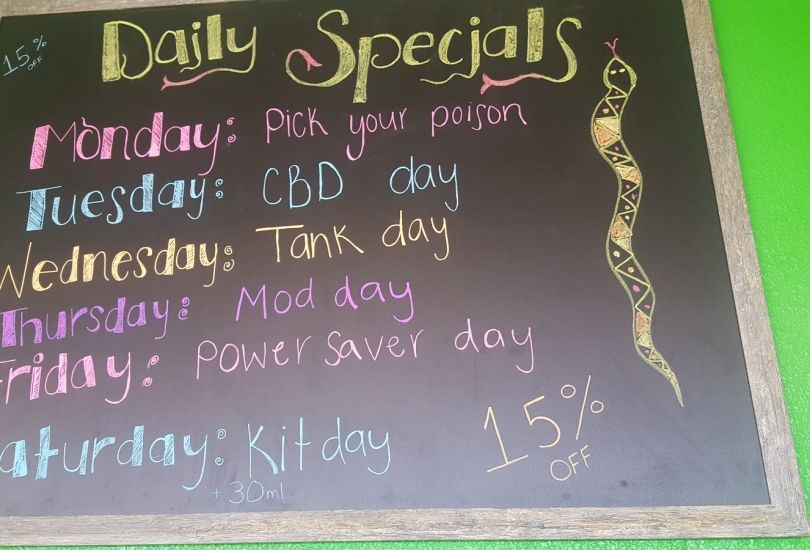 15%
OFF
Daily Specials
Monday: Pick your poison
Tuesday: CBD day
Wednesday: Tank day
Thursday: Mod day
Friday: Power saver day
aturday: Kit day
+ 30ml
15%
OFF